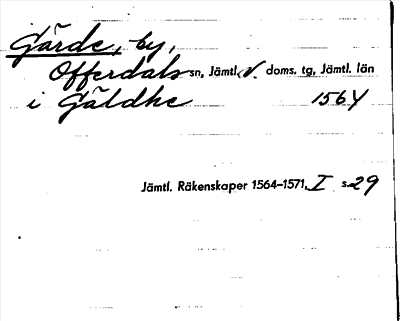 Gärde, by,
Offerdals sn, Jämtl. V. doms. tg, Jämtl. län
i Gäldhe 1564
Jämtl. Räkenskaper 1564–1571, I s. 29